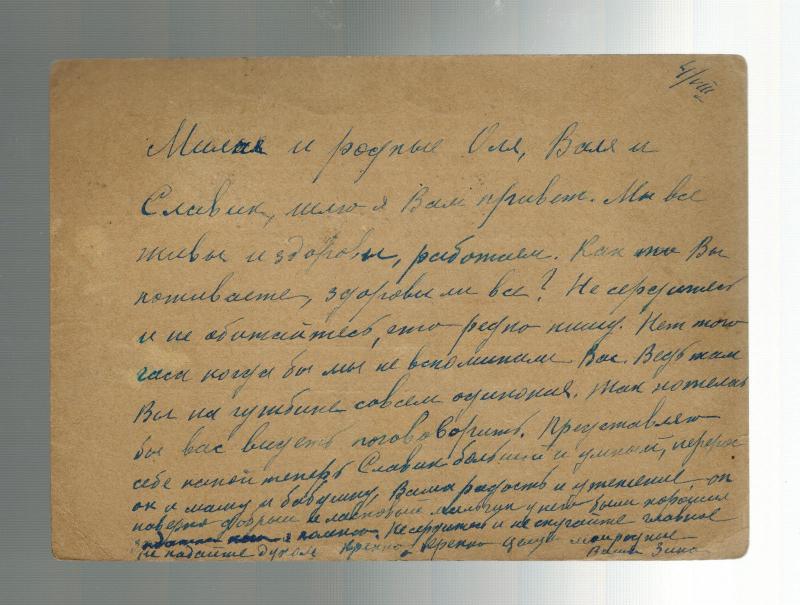 4/VIII
Милые и родные Оля, Валя и
Славик, шлю я Вам привет. Мы все
живы и здоровы, работаем. Как то Вы
поживаете, здоровы ли все? Не сердитесь
и не обижайтесь, что редко пишу. Нет того
часа когда бы мы не вспоминали Вас. Ведь там
Вы на чужбине совсем одинокия. Так хотелось
бы вас видеть поговорить. Представляю
себе какой теперь Славик большой и умный,
он и маму и бабушку, Вама радость и утешение, он
наверно добрый и ласковый мальчик у него были хорошия
я помню. Не сердитесь и не скучайте главное
не падайте духом Крепко Крепко целую мои родные
Ваша Зина